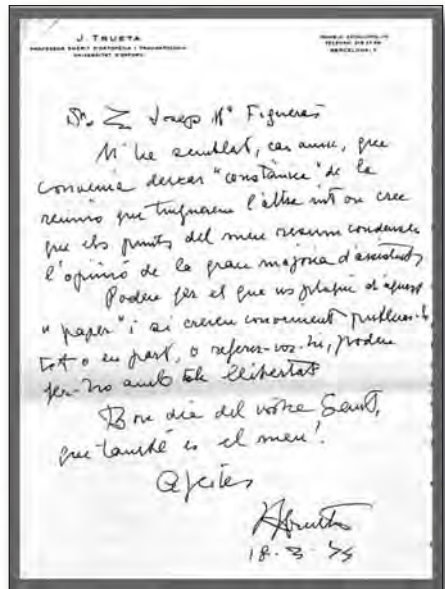 J. TRUETA
PROFESSOR EMÈRIT D'ORTOPÈDIA I TRAUMATOLOGIA
UNIVERSITAT D'OXFORD
BARCELONA
Sr. Josep Mª Figueras
M'ha semblat, car amic, que
convenia deixar "constància" de la
reunió que tinguerem l'altre nit on crec
que els punts del meu resum condensen
l'opinió de la gran majoria d'assistents
Podeu fer el que us plagui d'aquest
"paper" i si creieu convenient publicar-lo
tot o en part, o referir-vos-hi, podeu
fer-ho amb tota llibertat
Bon dia del vostre Sant,
que també és el meu!
J Trueta
18-3-75